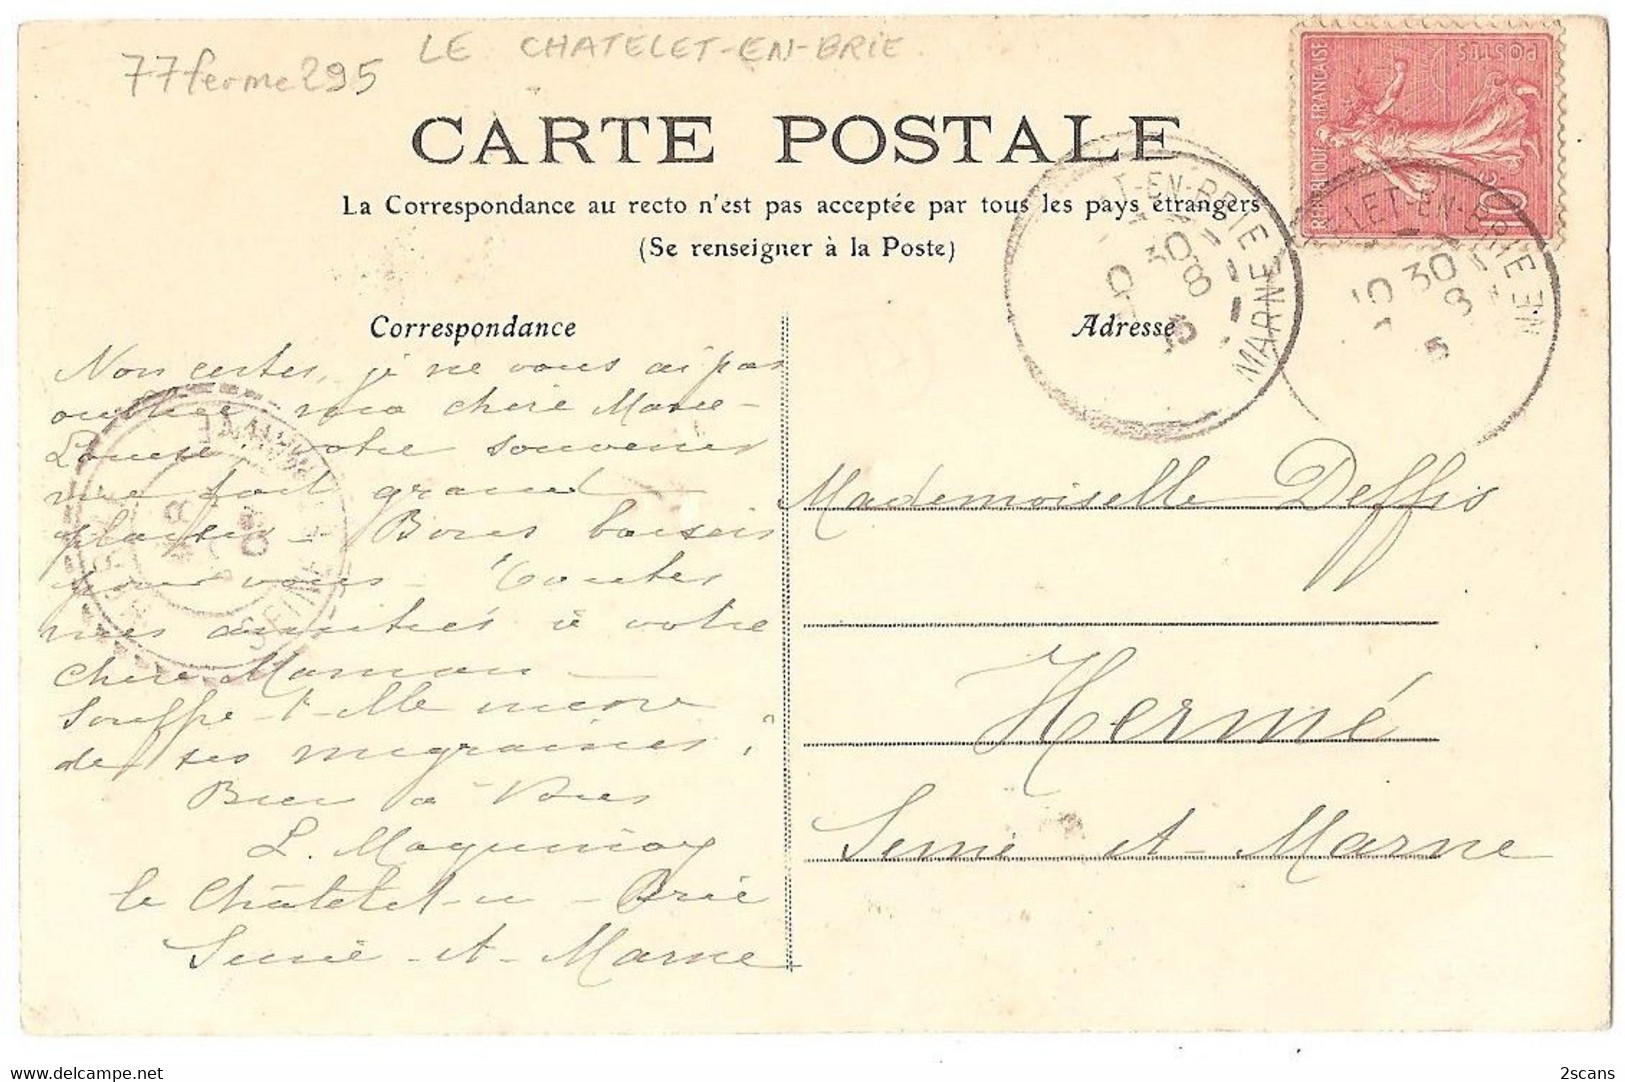 77ferme295
LE CHATELET-EN-BRIE
CARTE POSTALE
La Correspondance au recto n'est pas acceptée par tous les pays étrangers
(Se renseigner à la Poste)
REPUBLIQUE FRANÇAISE
POSTES
10
Correspondance
Non certes, je ne vous ai pas
oubliée ma chère Marie-
Louise votre souvenir
me fait grand
plaisir - Bons baisers
pour vous - Toutes
mes amitiés à votre
chère Maman -
Souffre-t-elle encore
de ses migraines ?
Bien à Vous
L.
le Châtelet-en-Brie
Seine-et-Marne
Adresse
Mademoiselle Deffis
Hermé
Seine-et-Marne
ET-EN-BRIE
MARNE
10 30
8
5
LET-EN-BRIE
NE
10 30
8
5
SEINE
2scans
delcampe.net